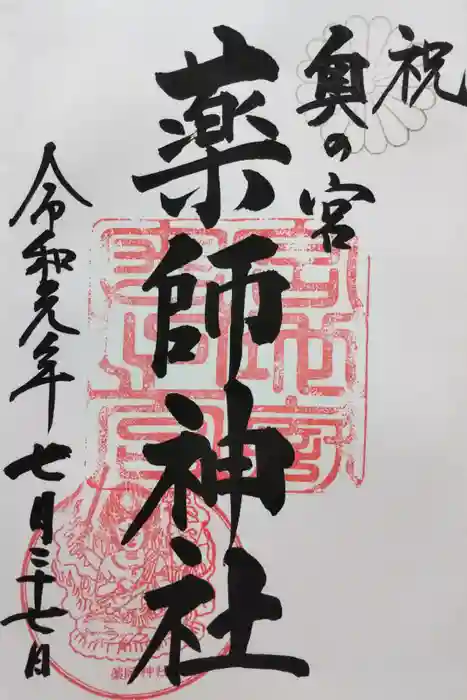 祝
奥の宮
薬師神社
令和元年七月二十七日